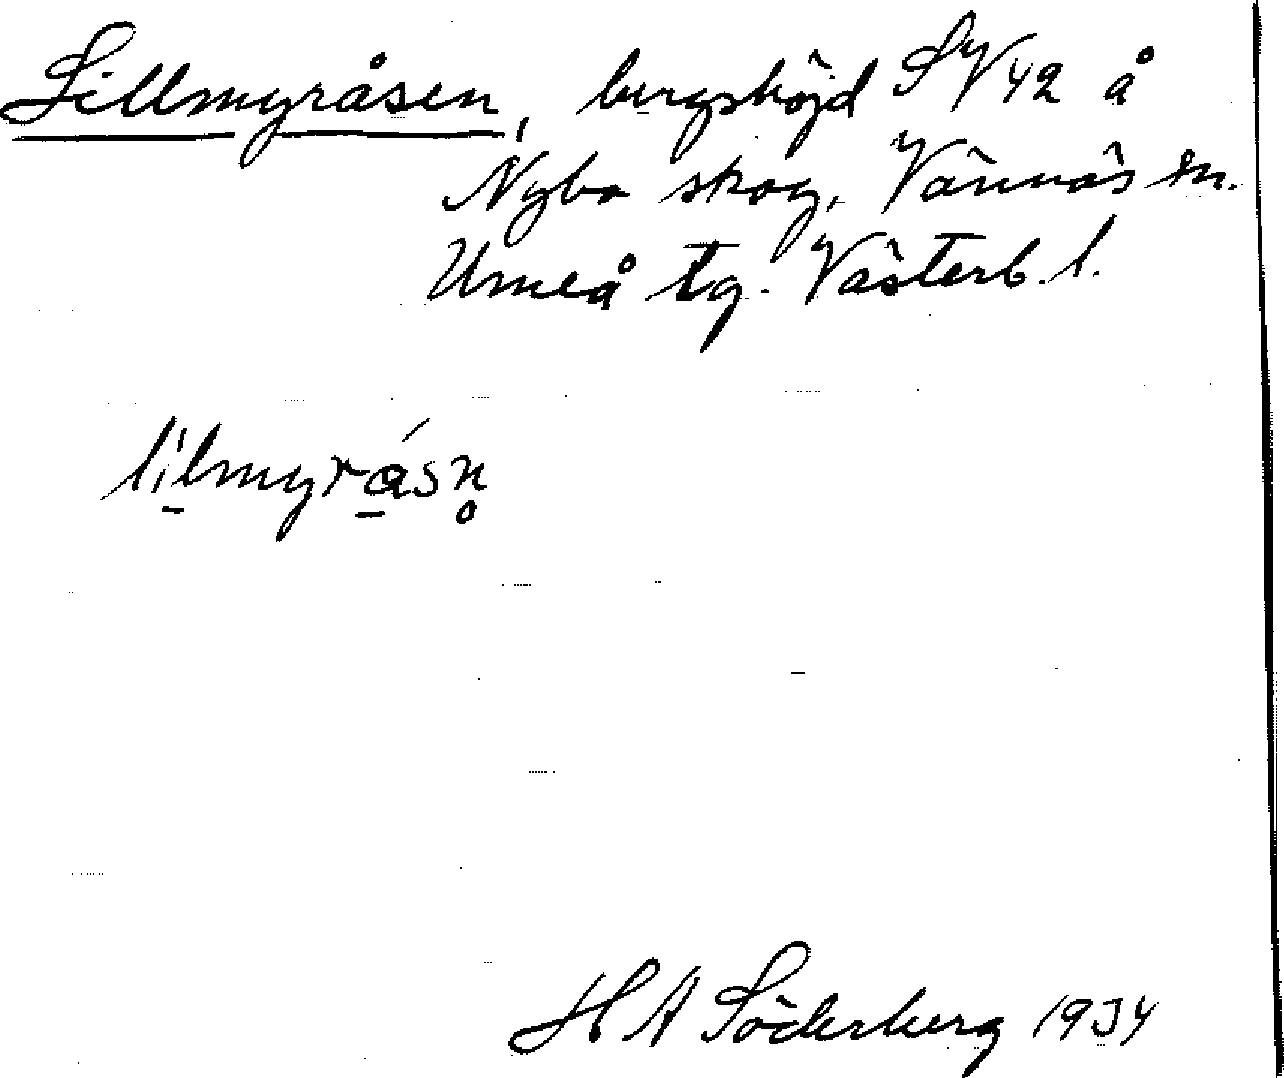 Lillmyråsen, bergshöjd SV 42 å
Nybo skog, Vännäs sn.
Umeå tg. Västerb. l.
lìlmyrásn̥
H A Söderberg 1934